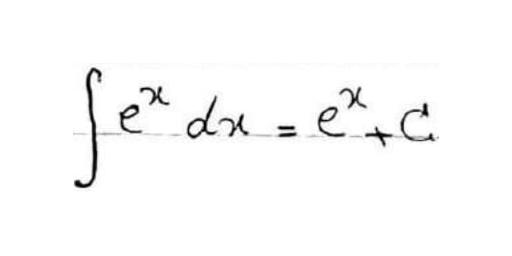 ∫ eˣ dx = eˣ + C